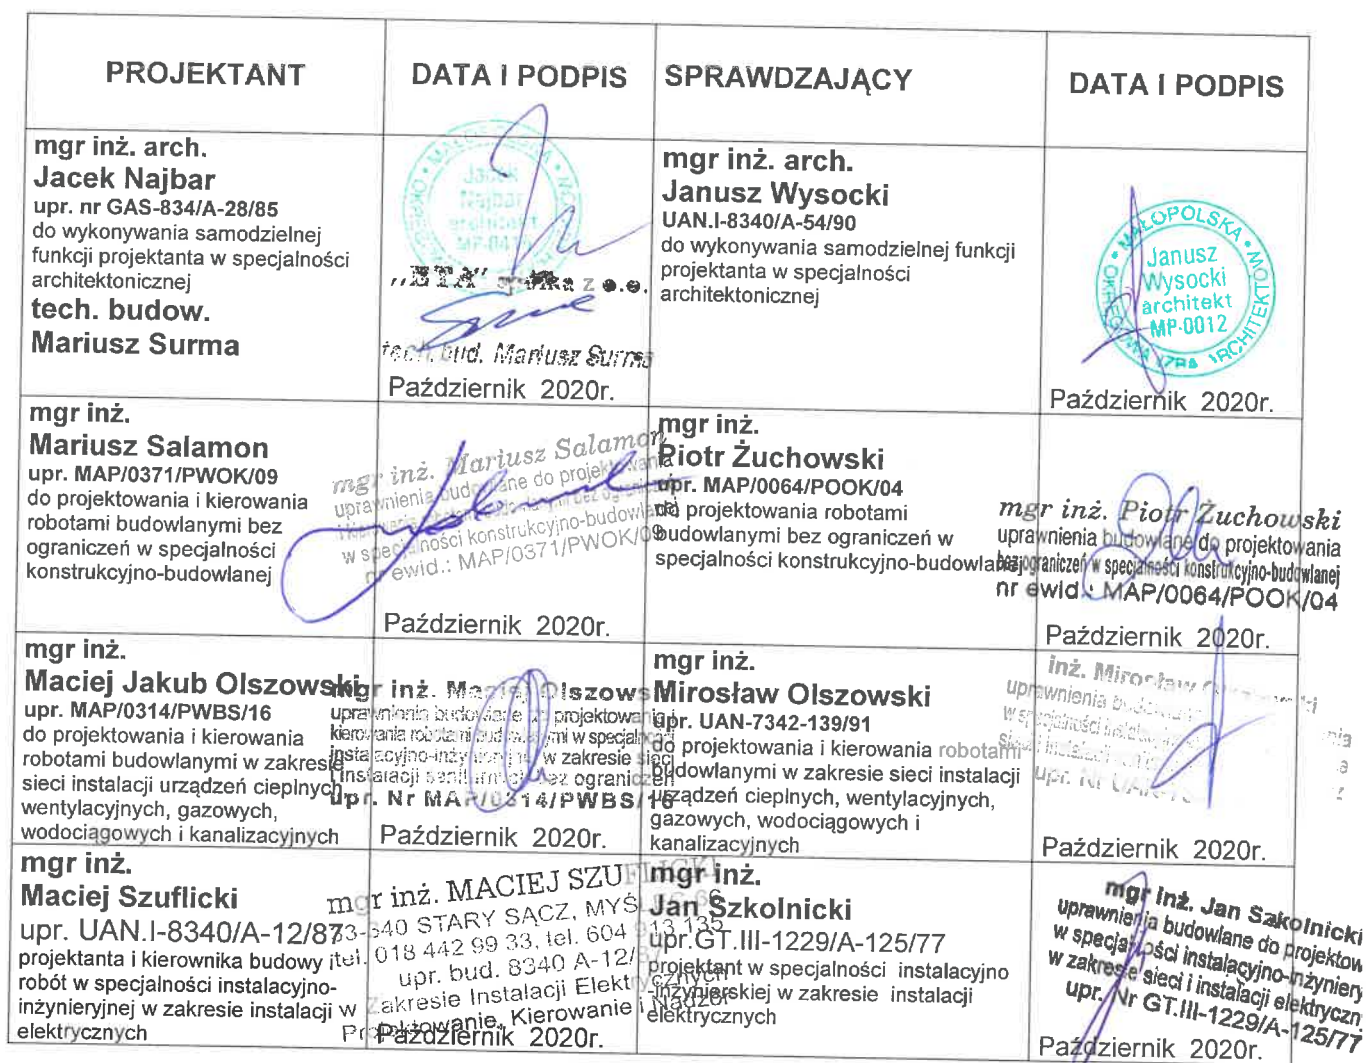 PROJEKTANT
DATA I PODPIS
SPRAWDZAJĄCY
DATA I PODPIS
mgr inż. arch.
Jacek Najbar
upr. nr GAS-834/A-28/85
do wykonywania samodzielnej
funkcji projektanta w specjalności
architektonicznej
tech. budow.
Mariusz Surma
Jacek
Najbar
architekt
„ETA" spółka z o.o.
tech. bud. Mariusz Surma
Październik 2020r.
mgr inż. arch.
Janusz Wysocki
UAN.I-8340/A-54/90
do wykonywania samodzielnej funkcji
projektanta w specjalności
architektonicznej
MAŁOPOLSKA OKRĘGOWA IZBA ARCHITEKTÓW
Janusz
Wysocki
architekt
MP-0012
Październik 2020r.
mgr inż.
Mariusz Salamon
upr. MAP/0371/PWOK/09
do projektowania i kierowania
robotami budowlanymi bez
ograniczeń w specjalności
konstrukcyjno-budowlanej
mgr inż. Mariusz Salamon
uprawnienia budowlane do projektowania
i kierowania robotami budowlanymi bez ograniczeń
w specjalności konstrukcyjno-budowlanej
nr ewid.: MAP/0371/PWOK/09
Październik 2020r.
mgr inż.
Piotr Żuchowski
upr. MAP/0064/POOK/04
do projektowania robotami
budowlanymi bez ograniczeń w
specjalności konstrukcyjno-budowlanej
mgr inż. Piotr Żuchowski
uprawnienia budowlane do projektowania
bez ograniczeń w specjalności konstrukcyjno-budowlanej
nr ewid.: MAP/0064/POOK/04
Październik 2020r.
mgr inż.
Maciej Jakub Olszowski
upr. MAP/0314/PWBS/16
do projektowania i kierowania
robotami budowlanymi w zakresie
sieci instalacji urządzeń cieplnych,
wentylacyjnych, gazowych,
wodociągowych i kanalizacyjnych
mgr inż. Maciej Olszows
uprawnienia budowlane do projektowania i
kierowania robotami budowlanymi w specjalności
instalacyjno-inżynieryjnej w zakresie sieci
i instalacji sanitarnych bez ograniczeń
upr. Nr MAP/0314/PWBS/16
Październik 2020r.
mgr inż.
Mirosław Olszowski
upr. UAN-7342-139/91
do projektowania i kierowania robotami
budowlanymi w zakresie sieci instalacji
urządzeń cieplnych, wentylacyjnych,
gazowych, wodociągowych i
kanalizacyjnych
inż. Mirosław Olszowski
uprawnienia
w specjalności
upr. Nr
Październik 2020r.
mgr inż.
Maciej Szuflicki
upr. UAN.I-8340/A-12/87
projektanta i kierownika budowy i
robót w specjalności instalacyjno-
inżynieryjnej w zakresie instalacji
elektrycznych
mgr inż. MACIEJ SZUFLICKI
33-340 STARY SĄCZ, MYŚLEC 66
tel. 018 442 99 33, tel. 604 913 135
upr. bud. 8340 A-12/87
w Zakresie Instalacji Elektrycznych
Projektowanie, Kierowanie i Nadzór
Październik 2020r.
mgr inż.
Jan Szkolnicki
upr.GT.III-1229/A-125/77
projektant w specjalności instalacyjno
-inżynierskiej w zakresie instalacji
elektrycznych
mgr inż. Jan Sakolnicki
uprawnienia budowlane do projektow
w specjalności instalacyjno-inżyniery
w zakresie sieci i instalacji elektryczn
upr. Nr GT.III-1229/A-125/77
Październik 2020r.